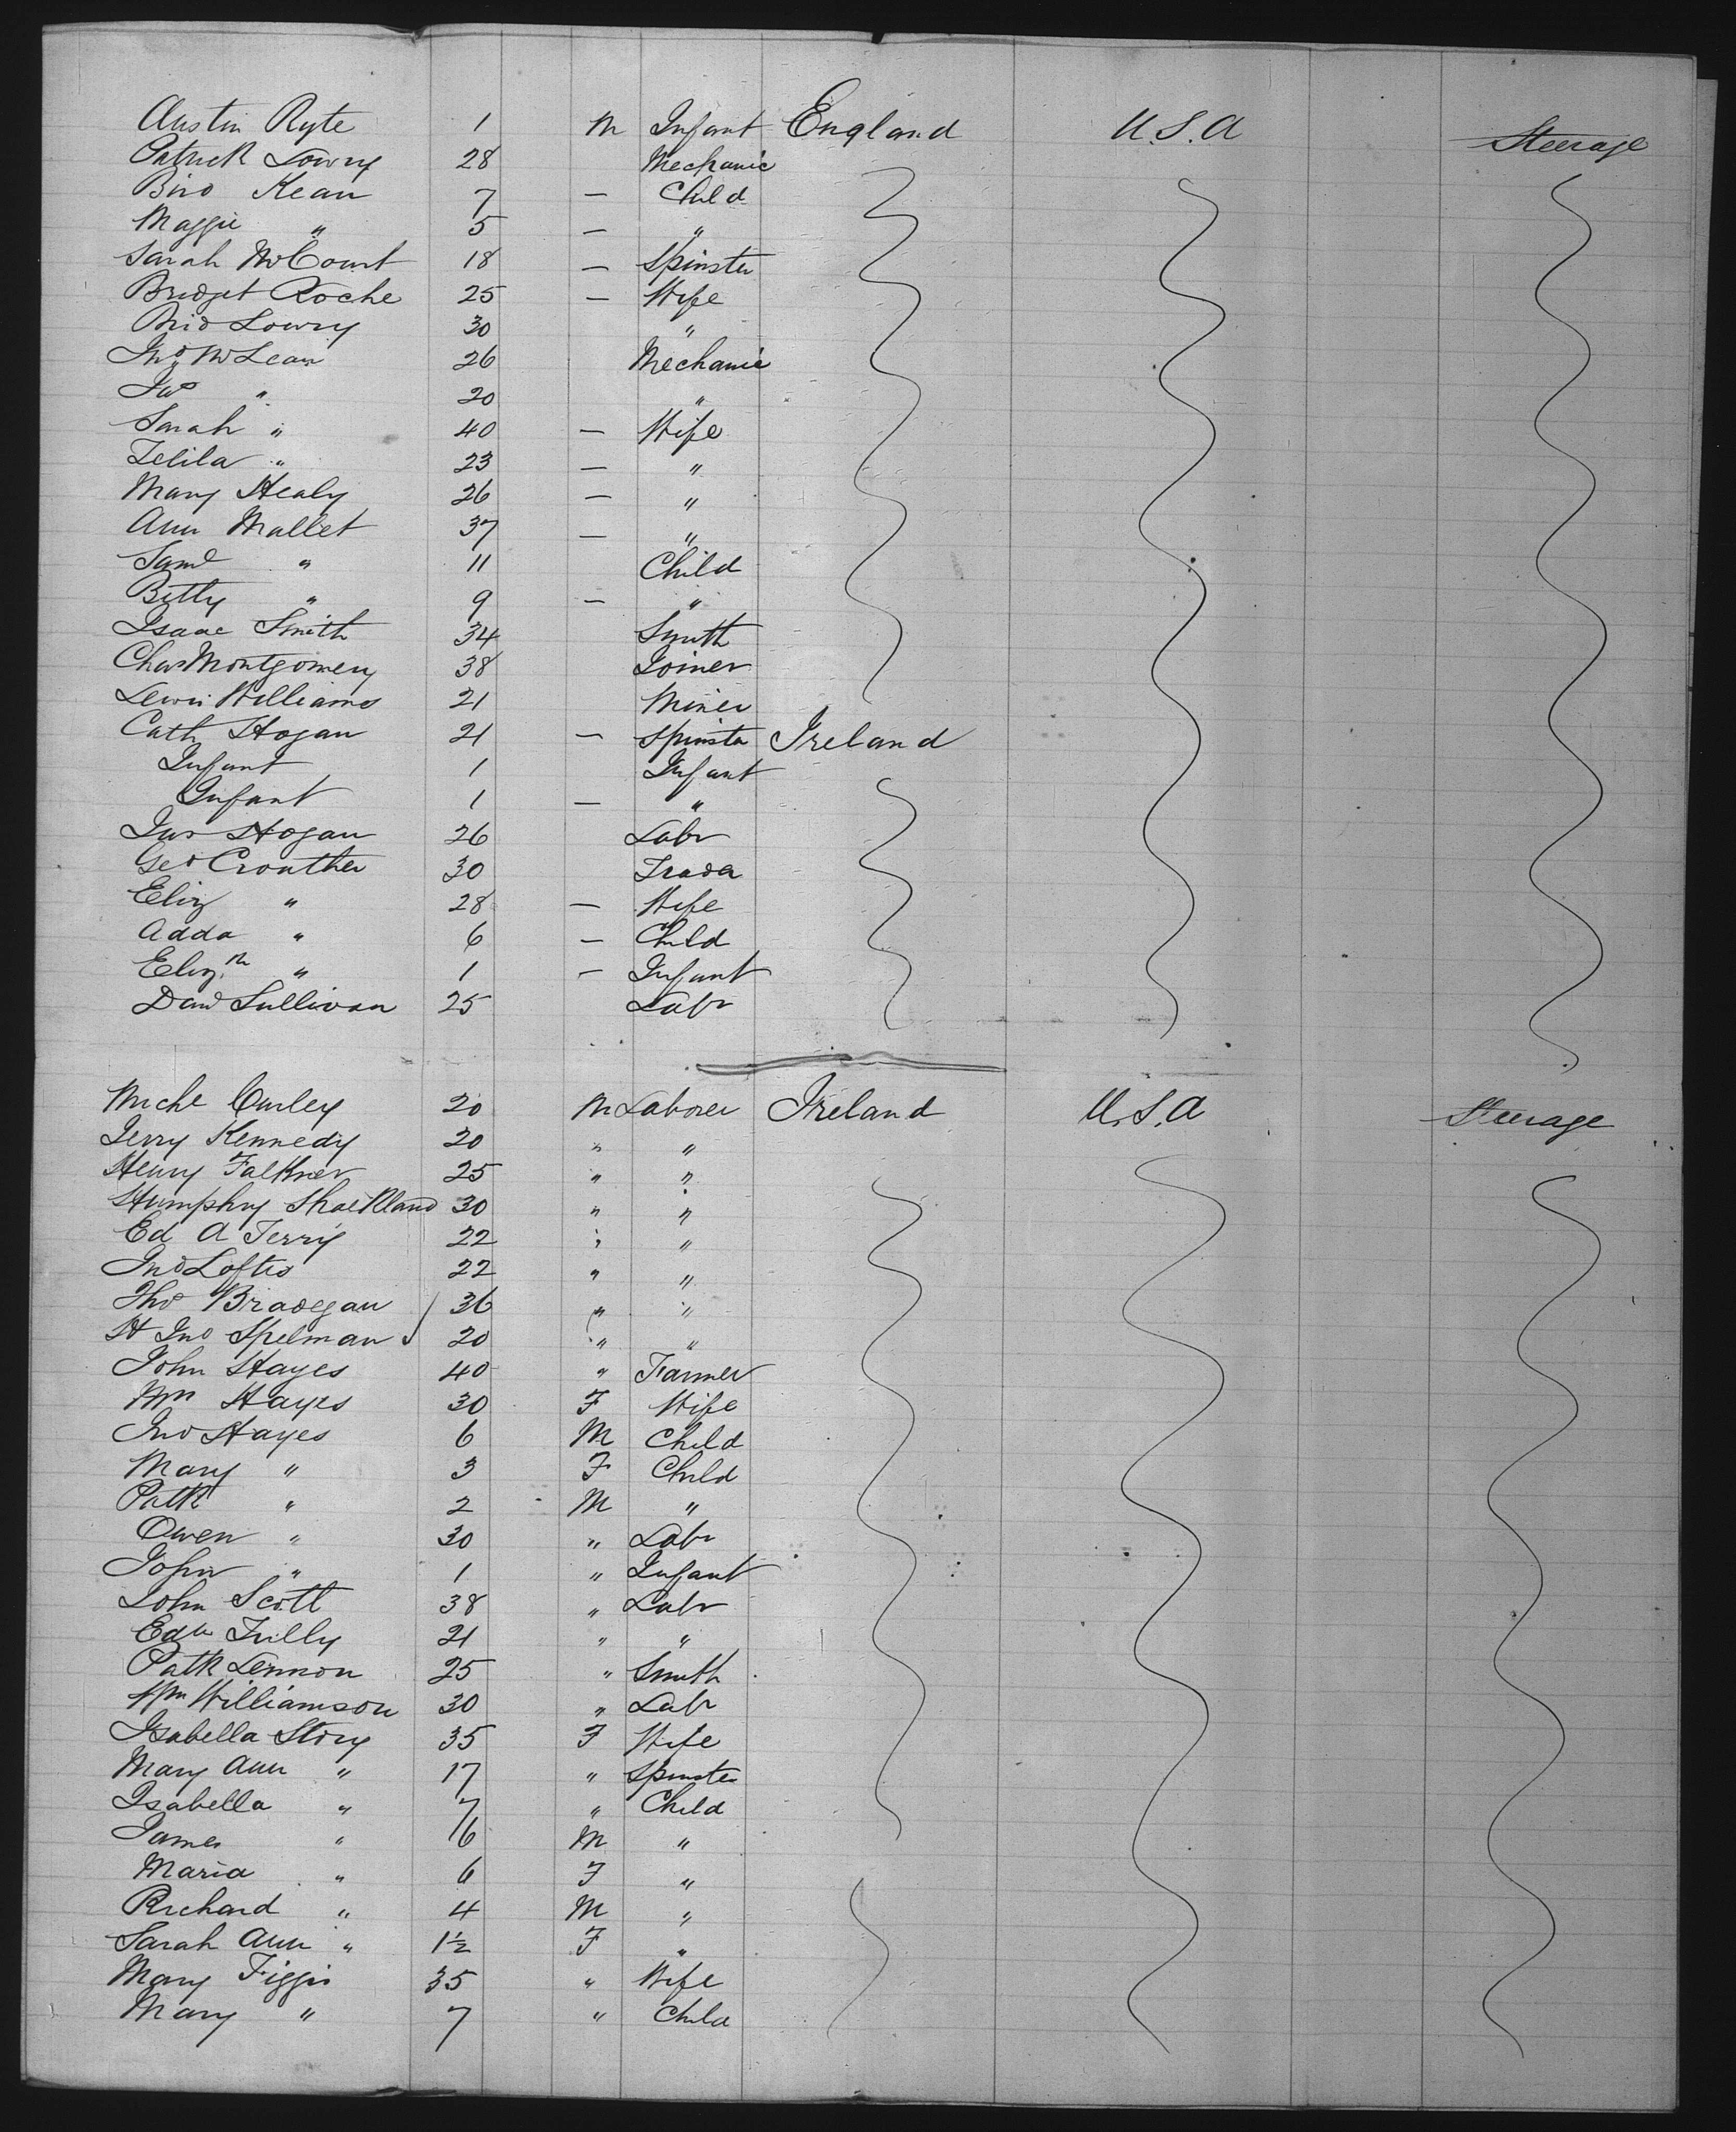 Austin Ryte 1 M Infant England U.S.A Steerage
Patrick Lowry 28 Mechanic
Bird Kean 7 — Child
Maggie " 5 — "
Sarah McCourt 18 — Spinster
Bridget Roche 25 — Wife
Brid Lowry 30 "
Jno McLean 26 Mechanic
" 20 "
Sarah " 40 — Wife
Zelila " 23 — "
Mary Healy 26 — "
Ann Mallet 37 — "
Saml " 11 Child
Betty " 9 — "
Isaac Smith 34 Smith
Chas Montgomery 38 Joiner
Lewis Williams 21 Miner
Cath Hogan 21 — Spinster Ireland
Infant 1 Infant
Infant 1 — "
Jas Hogan 26 Labr
Geo Crouther 30 Trader
Eliz " 28 — Wife
Adda " 6 — Child
Elizth " 1 — Infant
Danl Sullivan 25 Labr
Michl Curley 20 M Laborer Ireland U.S.A Steerage
Jerry Kennedy 20 " "
Henry Falkner 25 " "
Humphry Shackland 30 " "
Ed A Terry 22 " "
Jno Loftus 22 " "
Tho Bradegan 36 " "
St Jno Spelman 20 " "
John Hayes 40 " Farmer
Mrs Hayes 30 F Wife
Jno Hayes 6 M Child
Mary " 3 F Child
Patk " 2 M "
Owen " 30 " Labr
John " 1 " Infant
John Scott 38 " Labr
Edw Tully 21 " "
Patk Lennon 25 " Smith
Wm Williamson 30 " Labr
Isabella Story 35 F Wife
Mary Ann " 17 " Spinster
Isabella " 7 " Child
James " 6 M "
Maria " 6 F "
Richard " 4 M "
Sarah Ann " 1½ F "
Mary Figgis 35 " Wife
Mary " 7 " Child